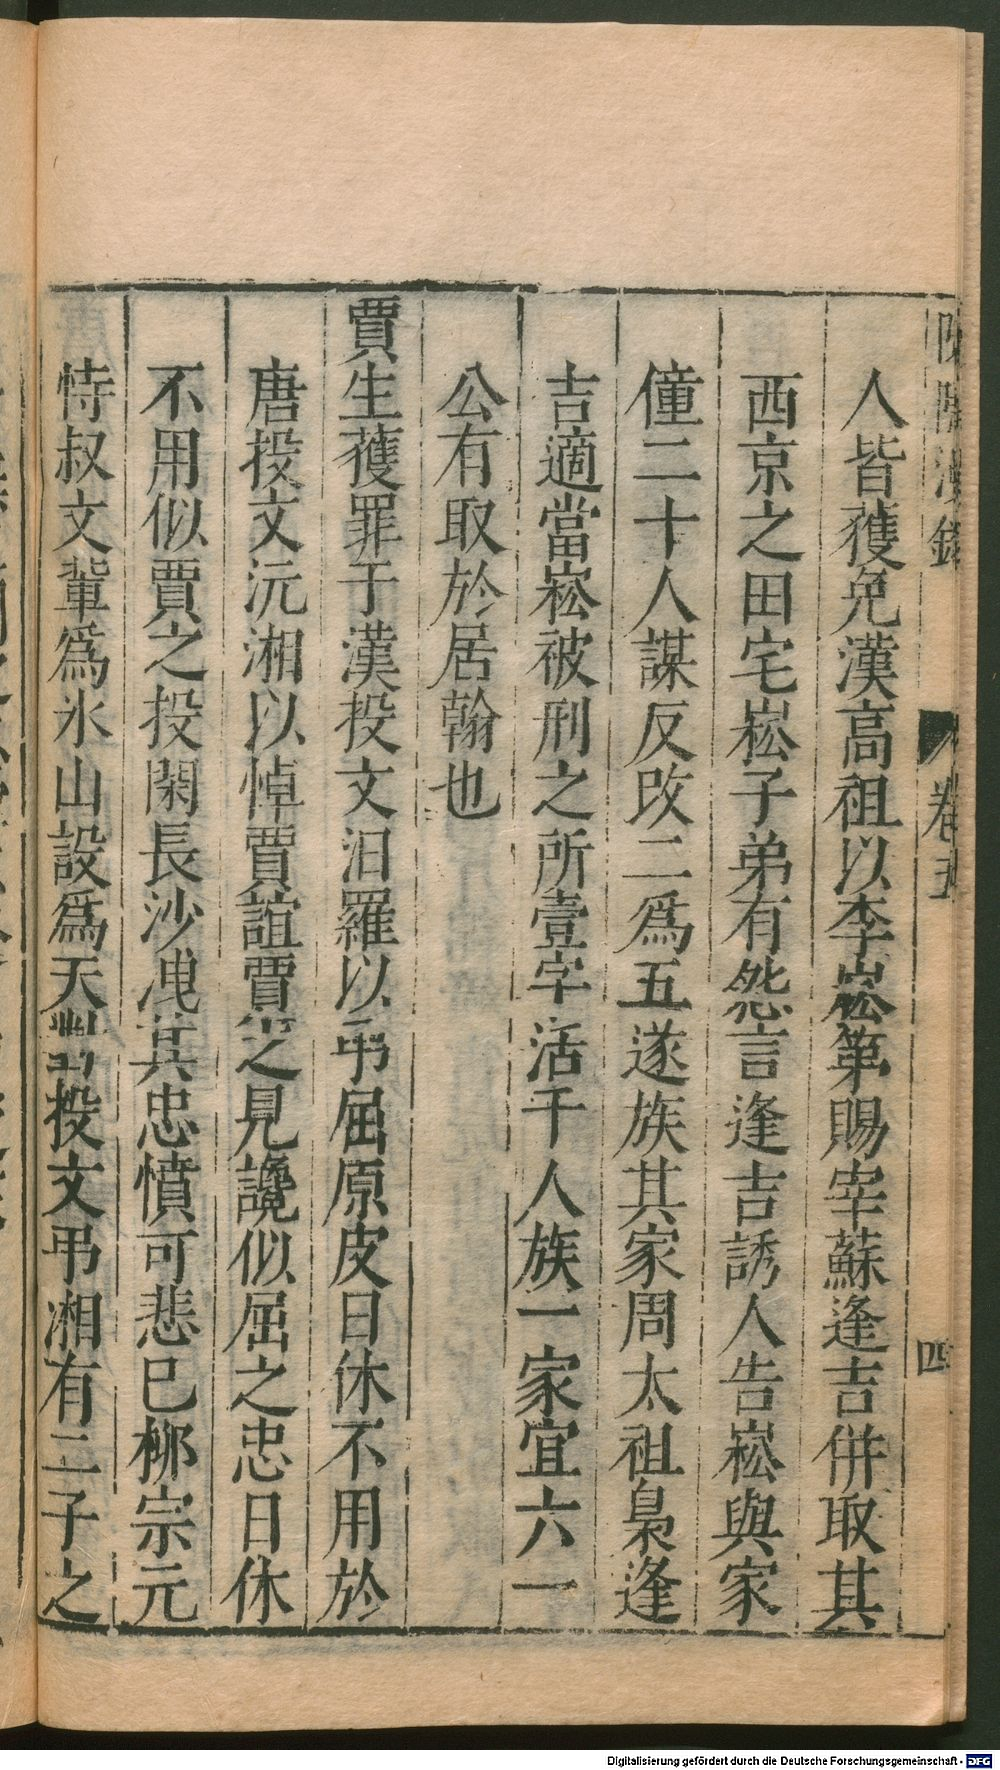 卷五
四
人皆獲免漢高祖以李崧第賜宰蘇逢吉併取其
西京之田宅崧子弟有怨言逢吉誘人告崧與家
僮二十人謀反改二爲五遂族其家周太祖梟逢
吉適當崧被刑之所壹字活千人族一家宜六一
公有取於居翰也
賈生獲罪于漢投文汨羅以弔屈原皮日休不用於
唐投文沅湘以悼賈誼賈之見讒似屈之忠日休
不用似賈之投閑長沙洩其忠憤可悲已柳宗元
恃叔文輩爲氷山設爲天對投文弔湘有二子之
Digitalisierung gefördert durch die Deutsche Forschungsgemeinschaft - DFG